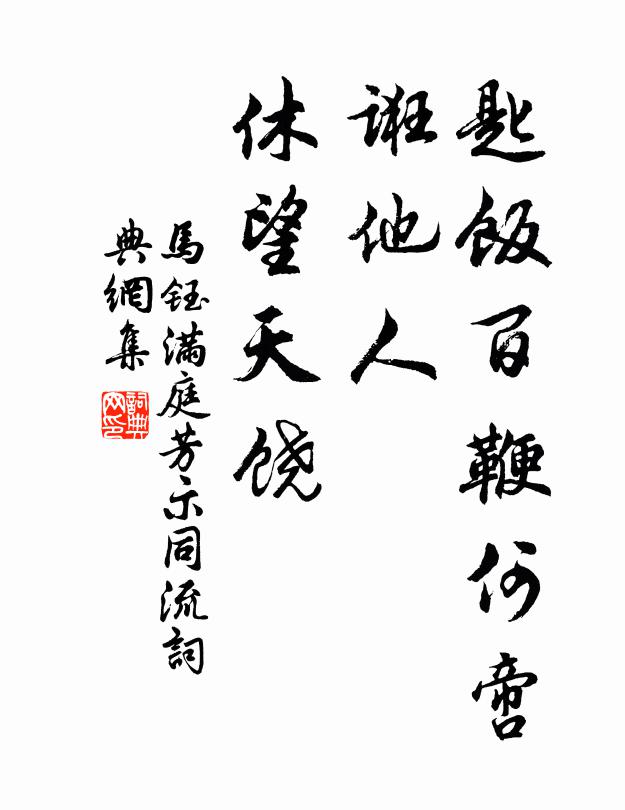 匙飯百鞭何啻
誑他人
休望天饶
馬鈺滿庭芳示同流詞
典網集
詞典网印